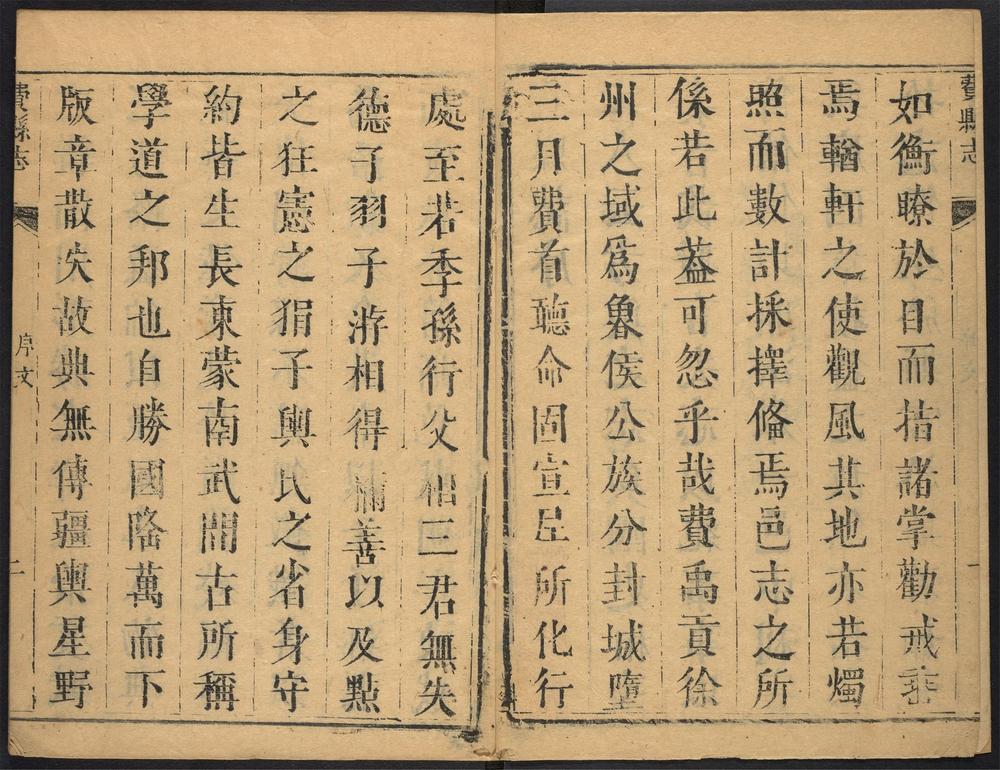 費縣志
如衡瞭於目而指諸掌勸戒垂
焉輶軒之使觀風其地亦若燭
照而數計採擇俻焉邑志之所
係若此葢可忽乎哉費禹貢徐
州之域爲魯侯公族分封城墮
三月費首聽命固宣尼所化行
處至若季孫行父相三君無失
德子羽子游相得 善以及㸃
之狂憲之狷子輿氏之省身守
約皆生長東蒙南武間古所稱
學道之邦也自勝國隆萬而下
版章散失故典無傳疆輿星野
費縣志
序文
二